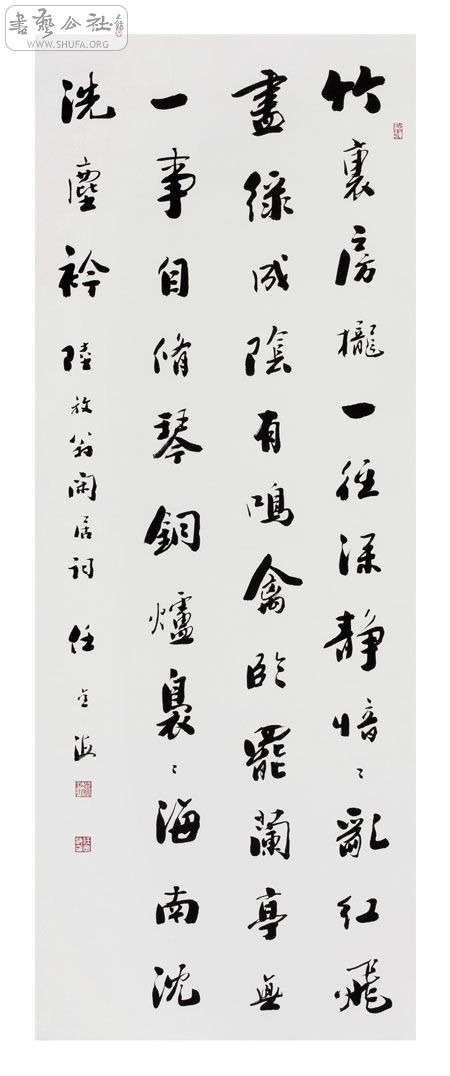 書藝公社
WWW.SHUFA.ORG
竹裏房櫳一徑深静愔〻亂紅飛
盡緑成陰有鳴禽臨罷蘭亭無
一事自脩琴銅爐裊〻海南沈
洗塵衿 陸放翁閑居詞 任海